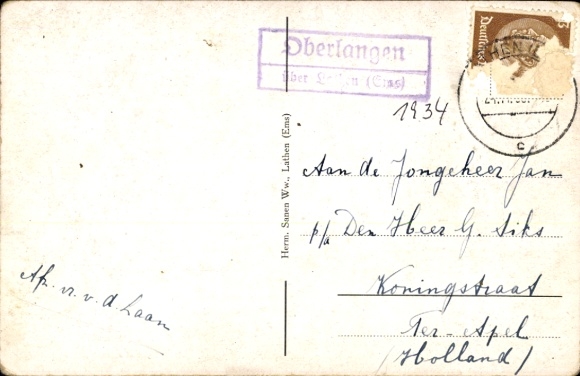 Oberlangen
über Lathen (Ems)
Deutsches
1934
c
Herm. Sanen Ww., Lathen (Ems)
Aan de Jongeheer Jan
p/a Den Heer G. Siks
Koningstraat
Ter-Apel
(Holland)
Afz. v. d Laan